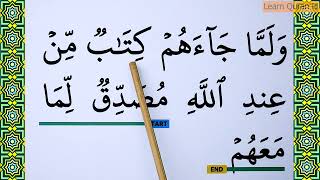 Learn Quran id
وَلَمَّا جَآءَهُمْ كِتَٰبٌ مِّنْ
عِندِ ٱللَّهِ مُصَدِّقٌ لِّمَا
START
مَعَهُمْ
END